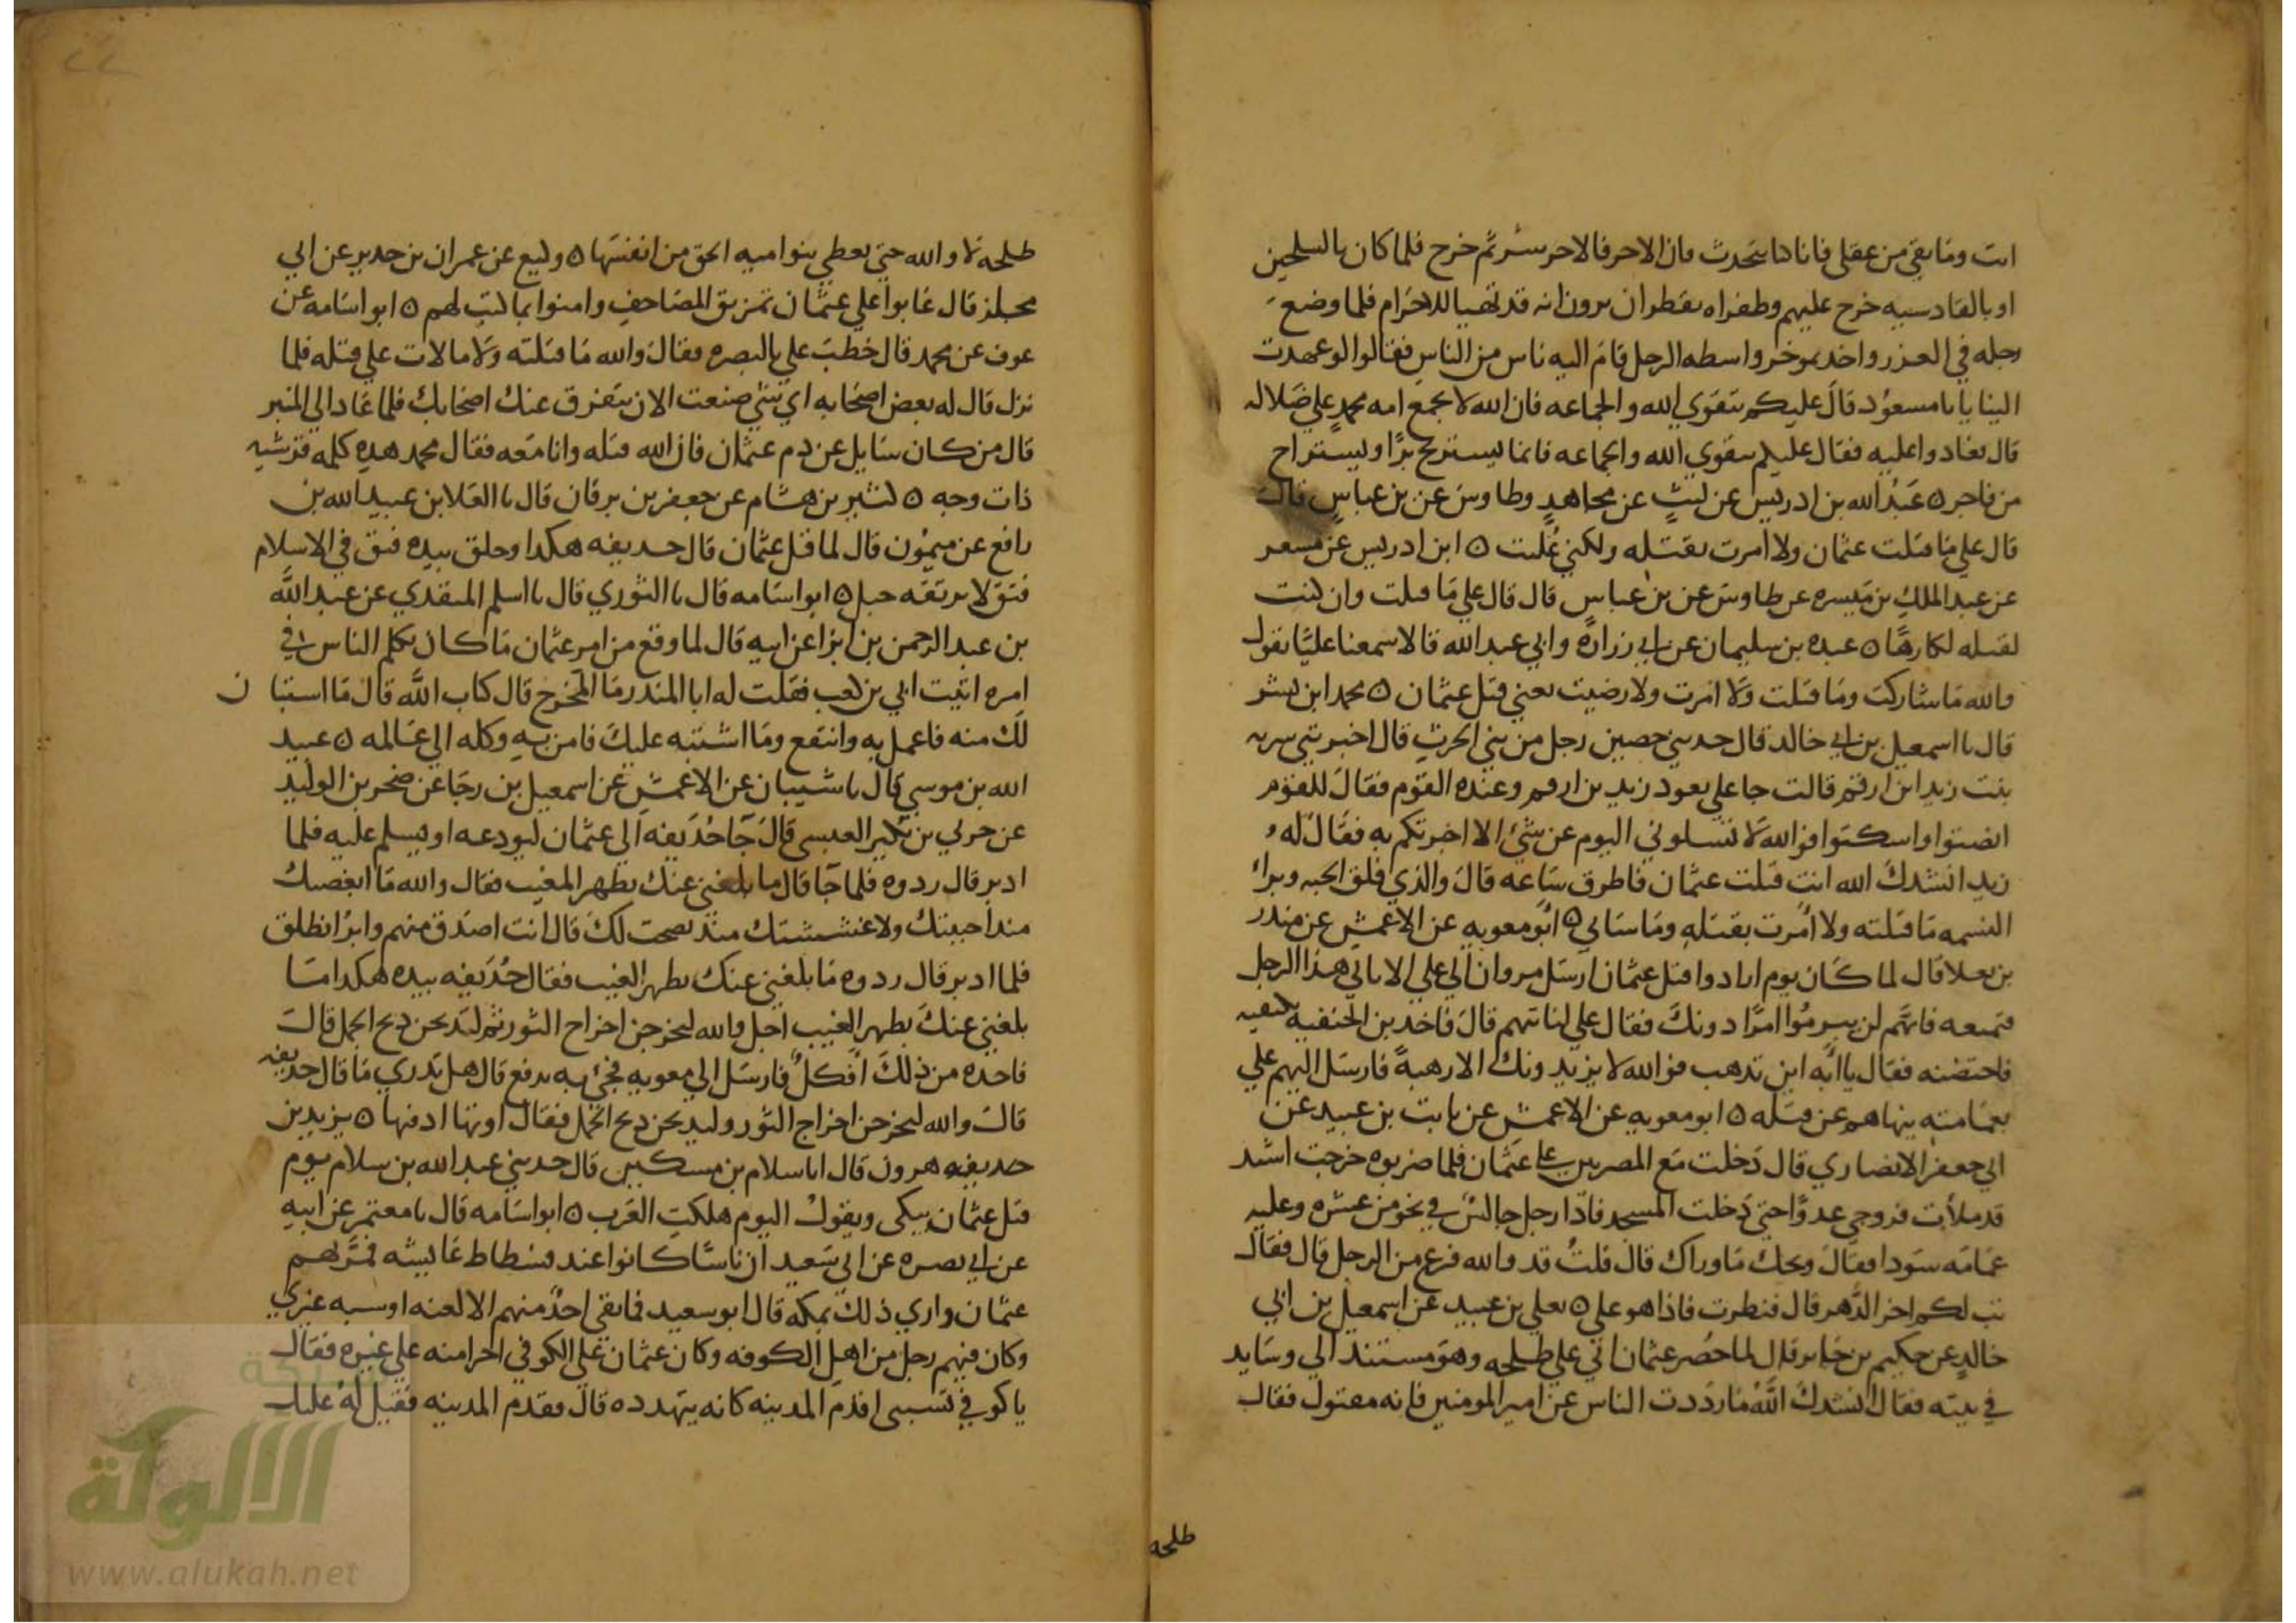 انت وما بقي من عقلي فانا هنا نتحدث بان الاخر فالاخر شر ثم خرج فلما كان بالسلحين
او بالقادسيه خرج عليهم وظفراه يقطران يرون انه قد تهيا للاحرام فلما وضع
رجله في الغرز واخذ بموخر واسطه الرحل قام اليه ناس من الناس فقالوا لو عهدت
الينا يا با مسعود قال عليكم بتقوي الله والجماعه فان الله لا يجمع امه محمد علي ضلاله
قال فعادوا عليه فقال عليكم بتقوي الله والجماعه فانما يستريح برا او يستراح
من فاجر ٥ عبد الله بن ادريس عن ليث عن مجاهد وطاوس عن بن عباس قال
قال علي ما قتلت عثمان ولا امرت بقتله ولكني غلبت ٥ ابن ادريس عن مسعر
عن عبد الملك بن ميسره عن طاوس عن بن عباس قال قال علي ما قتلت وان كنت
لقتله لكارها ٥ عبده بن سليمان عن ابي زراره وابي عبد الله قالا سمعنا عليا يقول
والله ما شاركت وما قتلت ولا امرت ولا رضيت يعني قتل عثمان ٥ محمد ابن بشر
قال نا اسمعيل بن ابي خالد قال حدثني حصين رجل من بني الحرث قال اخبرتني سريه
بنت زيد ابن ارقم قالت جا علي يعود زيد بن ارقم وعنده القوم فقال للقوم
انصتوا واسكتوا فوالله لا تسلوني اليوم عن شئ الا اخبرتكم به فقال له
زيد انشدك الله انت قتلت عثمان فاطرق ساعه قال والذي فلق الحبه وبرا
النسمه ما قتلته ولا امرت بقتله وما ساني ٥ ابو معويه عن الاعمش عن منذر
بن يعلا قال لما كان يوم ارادوا قتل عثمان ارسل مروان الي علي الا تاتي هذا الرجل
فتمنعه فانهم لن يبرموا امرا دونك فقال علي لناتينهم قال فاخذ بن الحنفيه بكتفيه
فاحتضنه فقال يا ابه اين تذهب فوالله لا يزيدونك الا رهبة فارسل اليهم علي
بعمامته ينهاهم عن قتله ٥ ابو معويه عن الاعمش عن ثابت بن عبيد عن
ابي جعفر الانصاري قال دخلت مع المصريين علي عثمان فلما ضربوه خرجت اشتد
قد ملأت فروجي عدوا حتي دخلت المسجد فاذا رجل جالس في نحو من عشره وعليه
عمامه سودا فقال ويحك ما وراك قال قلت قد والله فرغ من الرجل قال فقال
تب لكم اخر الدهر قال فنظرت فاذا هو علي ٥ يعلي بن عبيد عن اسمعيل بن ابي
خالد عن حكيم بن جابر قال لما حصر عثمان اتي علي طلحه وهو مستند الي وسايد
في بيته فقال انشدك الله ما رددت الناس عن امير المومنين فانه مقتول فقال
طلحه
طلحه لا والله حتي يعطي بنوا اميه الحق من انفسها ٥ وكيع عن عمران بن حدير عن ابي
مجلز قال عابوا علي عثمان تمزيق المصاحف وامنوا بما كتب لهم ٥ ابو اسامه عن
عوف عن محمد قال خطب علي بالبصره فقال والله ما قتلته ولا مالات علي قتله فلما
نزل قال له بعض اصحابه اي شي صنعت الان يتفرق عنك اصحابك فلما عاد الي المنبر
قال من كان سايل عن دم عثمان فان الله قتله وانا معه فقال محمد هذه كلمه قرشيه
ذات وجه ٥ كثير بن هشام عن جعفر بن برقان قال نا العلا بن عبيد الله بن
رافع عن ميمون قال لما قتل عثمان قال حذيفه هكذا وحلق بيده فتق في الاسلام
فتق لا يرتقه جبل ٥ ابو اسامه قال نا الثوري قال نا اسلم المنقدي عن عبد الله
بن عبد الرحمن بن ابزا عن ابيه قال لما وقع من امر عثمان ما كان وتكلم الناس في
امره اتيت ابي بن كعب فقلت له ابا المنذر ما المخرج قال كتاب الله قال ما استبان
لك منه فاعمل به وانتفع وما اشتبه عليك فامن به وكله الي عالمه ٥ عبيد
الله بن موسي قال نا شيبان عن الاعمش عن اسمعيل بن رجا عن صخر بن الوليد
عن جزي بن بكير العبسي قال جا حذيفه الي عثمان ليودعه او يسلم عليه فلما
ادبر قال ردوه فلما جا قال ما بلغني عنك بظهر المغيب فقال والله ما ابغضتك
منذ احببتك ولا غششتك منذ نصحت لك قال انت اصدق منهم وابر انطلق
فلما ادبر قال ردوه ما بلغني عنك بظهر الغيب فقال حذيفه بيده هكذا ما
بلغني عنك بظهر الغيب اجل والله لتخرجن اخراج الثور ثم لتذبحن ذبح الجمل قال
فاخذه من ذلك افكل فارسل الي معويه فجئ به يدفع قال هل تدري ما قال حذيفه
قال والله لتخرجن اخراج الثور ولتذبحن ذبح الجمل فقال اوتها ادفنها ٥ يزيد بن
حذيفه هرون قال انا سلام بن مسكين قال حدثني عبد الله بن سلام يوم
قتل عثمان يبكي ويقول اليوم هلكت العرب ٥ ابو اسامه قال نا معتمر عن ابيه
عن ابي نصره عن ابي سعيد ان ناسا كانوا عند فسطاط عايشه فمر بهم
عثمان واري ذلك بمكه قال ابو سعيد فما بقي احد منهم الا لعنه او سبه غيري
وكان فيهم رجل من اهل الكوفه وكان عثمان علي الكوفي اجرا منه علي غيره فقال
يا كوفي تسبني اقدم المدينه كانه يتهدده قال فقدم المدينه فقيل له عليك
شبكة
الألوكة
www.alukah.net